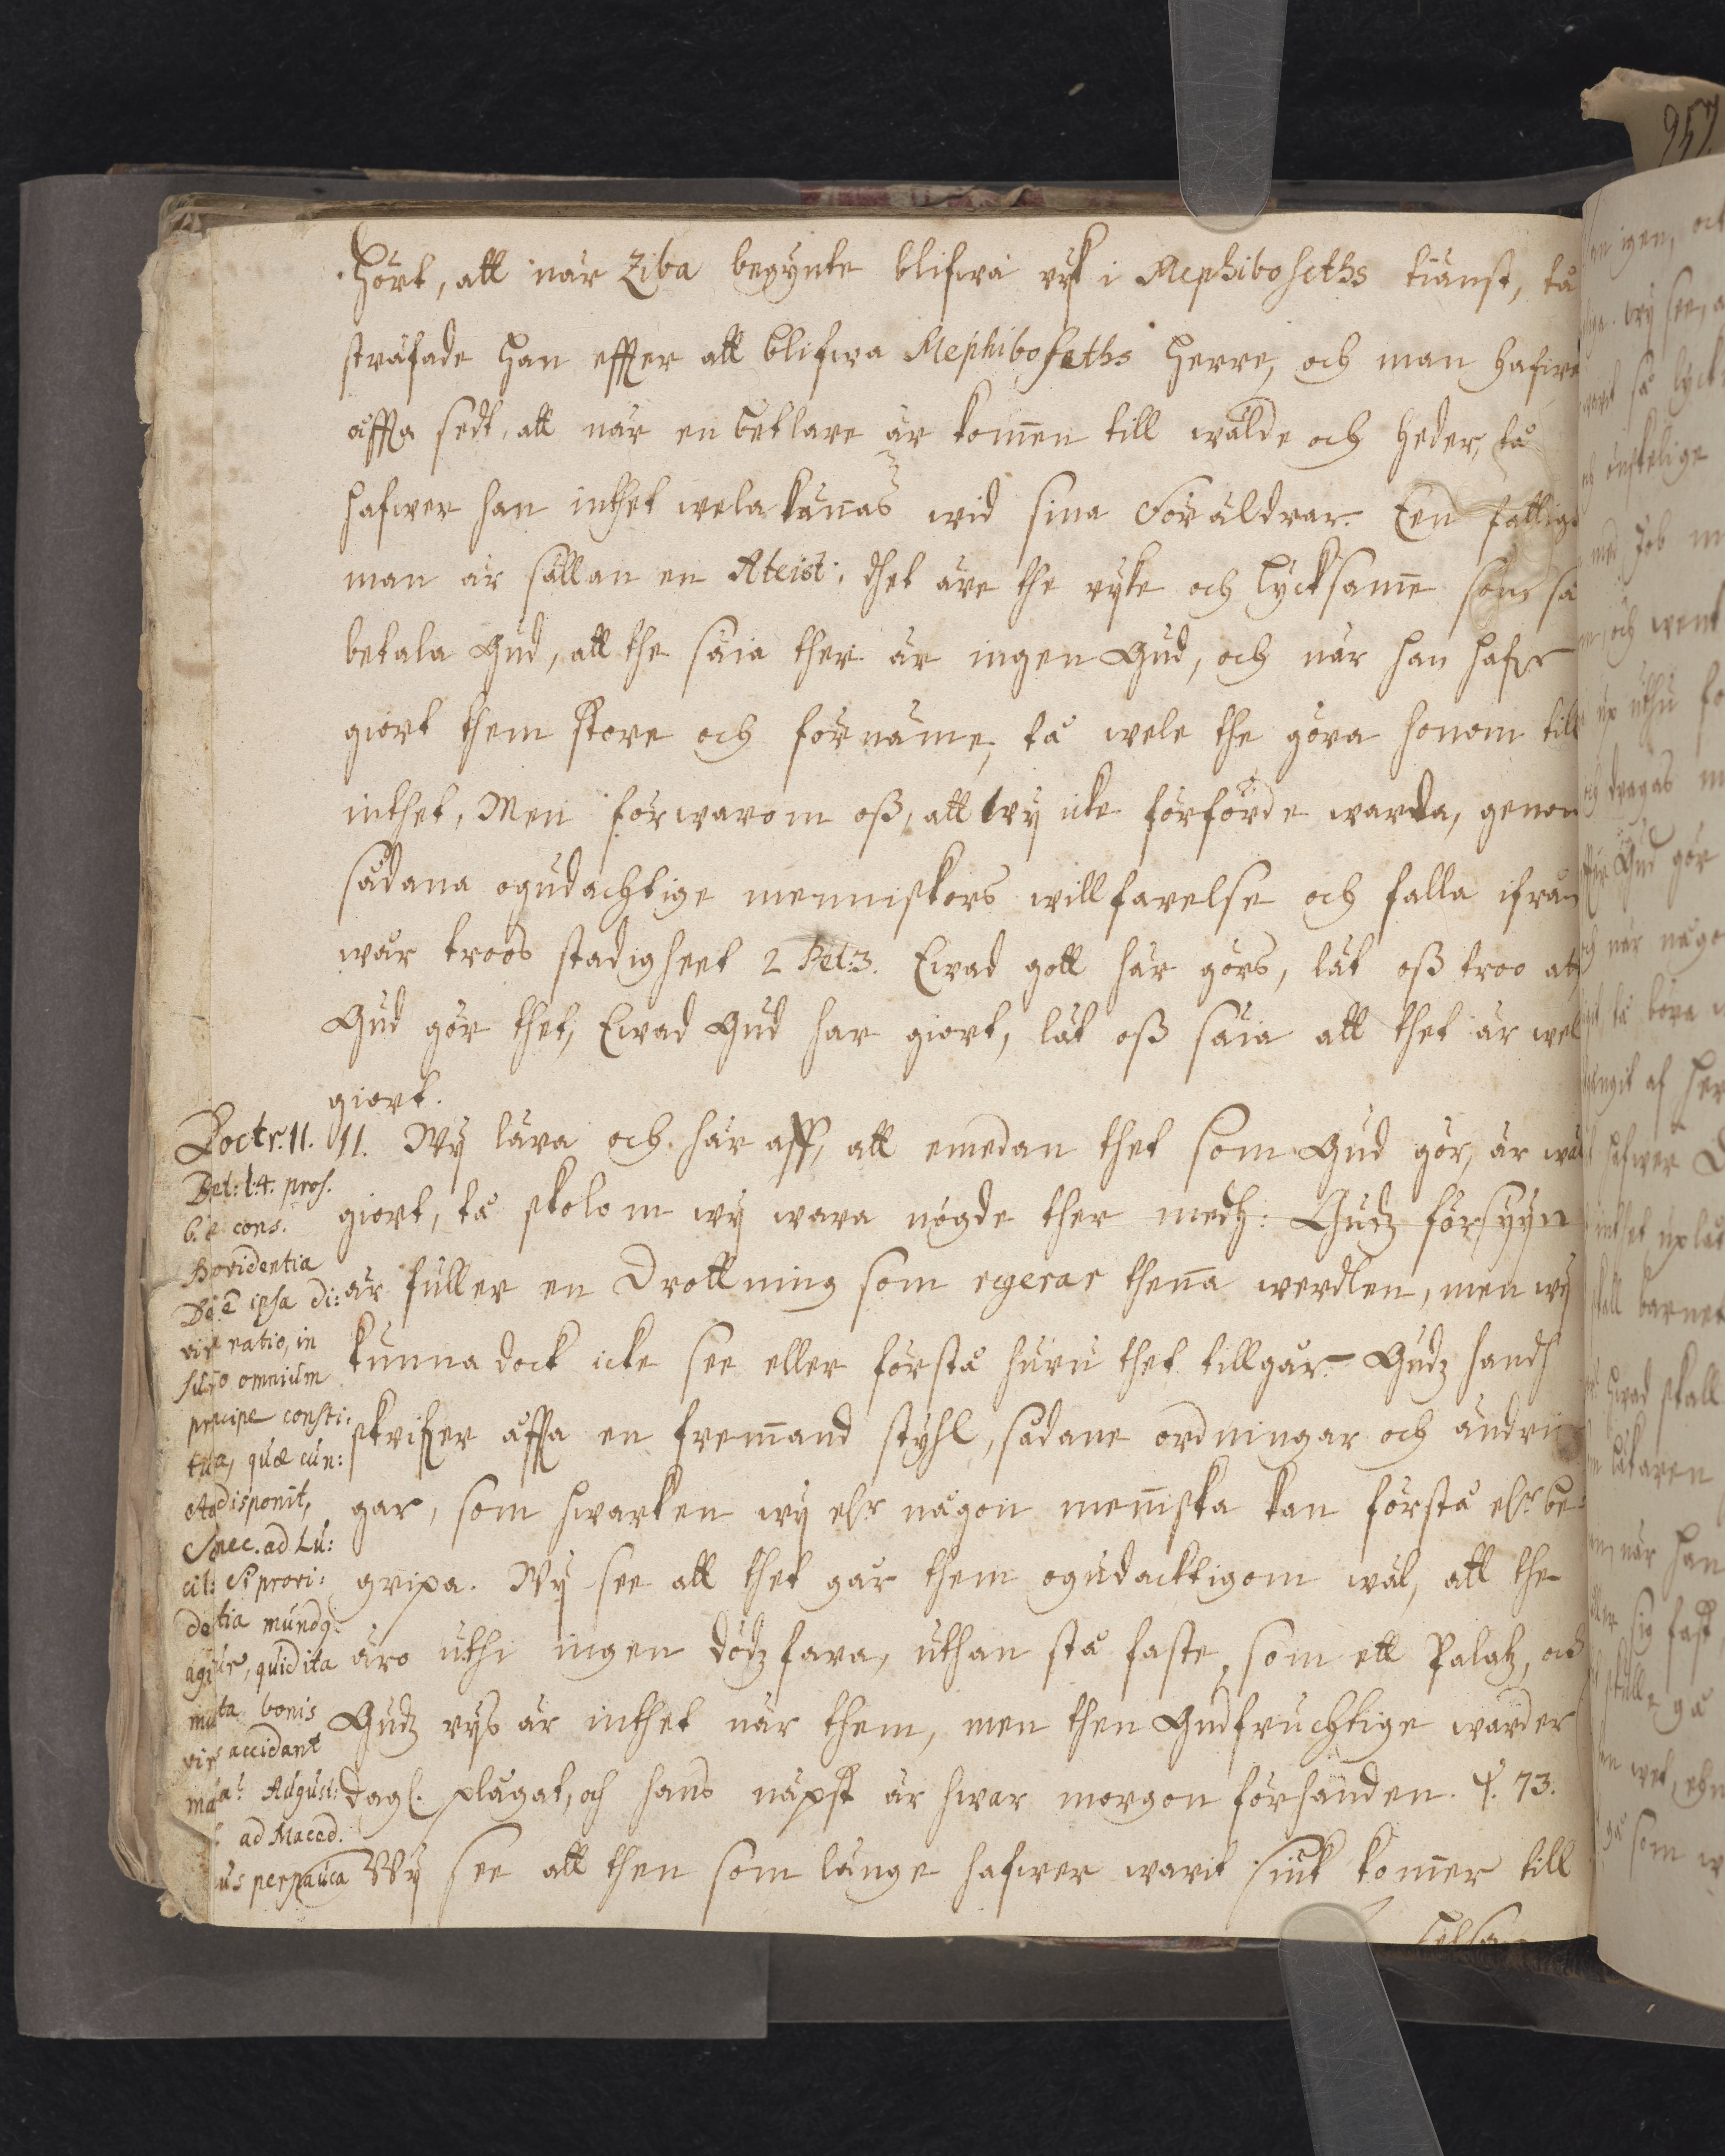 hört, att när Ziba begynte blifwa ryk i Mephiboseths tiänst, tå
sträfade han effter att blifwa Mephiboseths herre, och man hafwer
offta sedt, att när en betlare är kom̄en till wälde och heder, tå
hafwer han inthet wela kän̄as wid sina Föräldrar. Een fattig
man är sällan en Ateist; thet äre the ryke och lycksam̄e som så
betala Gud, att the säia ther är ingen Gud, och när han hafwer
giort them store och förnäme, tå wele the göra honom till
inthet, Men förwarom oß, att wij icke förförde warda, genom
sådana ogudachtige menniskors willfarelse och falla ifrån
wår troos stadigheet 2 Pet:3. Ewad gott här görs, låt oß troo att
Gud gör thet, Ewad Gud har giort, låt oß säia att thet är wel
giort.
11. Wij lära och här aff, att emedan thet som Gud gör, är wäl
giort, tå skolom wij wara nögde ther medh: Gudz försyyn
är fuller en Drottning som regerar then̄a werdlen, men wij
kunna dock icke see eller förstå huru thet tillgår. Gudz hand
skrifwer offta en frem̄and styhl, sådane ordningar och ändrin
gar, som hwarken wij elr någon men̄iska kan förstå elr be:
gripa. Wij see att thet går them ogudacktigom wäl, att the
äro uthi ingen dödz fara, uthan stå faste, som ett Palatz, och
Gudz rijs är inthet när them, men then Gudfruchtige warder
dagl. plågat, och hans näpst är hwar morgon förhanden. ψ. 73.
Wij see att then som länge hafwer warit siuk kom̄er till
Doctr. 11.
Boet: l:4. pros.
6. de cons.
Providentia
est ipsa di:
vina ratio, in
sum̄o omnium
principe consti:
tuta, quæ cun:
cta disponit,
Senec. ad Lu:
cil: Si provi:
dentia mundus
agitur, quid ita
multa bonis
viris accidant
mala. August:
ad Maced.
us perpauca
957